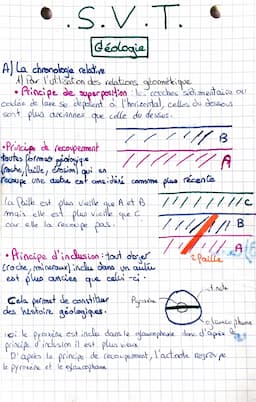 .S.V.T.
Géologie
A/ La chronologie relative
1) Par l'utilisation des relations géométrique
• Principe de superposition : les couches sédimentaire ou
coulée de lave se déposent à l'horizontal, celles du dessous
sont plus anciennes que celle du dessus.
• Principe de recoupement
toutes formes géologique
(roche, faille, érosion) qui en
recoupe une autre est considéré comme plus récente
B
A
La faille est plus vieille que A et B
mais elle est plus vieille que C
car elle la recoupe pas.
C
B
A
faille
• Principe d'inclusion : tout objet
(roche, minéraux) inclu dans un autre
est plus ancien que celui-ci.
Cela permet de constituer
des histoire géologiques.
Pyroxène
glaucophane
ici le pyroxène est inclu dans le glaucophane donc d'après le
principe d'inclusion il est plus vieux
D'après le principe de recoupement, l'actinote regroupe
le pyroxène et le glaucophane